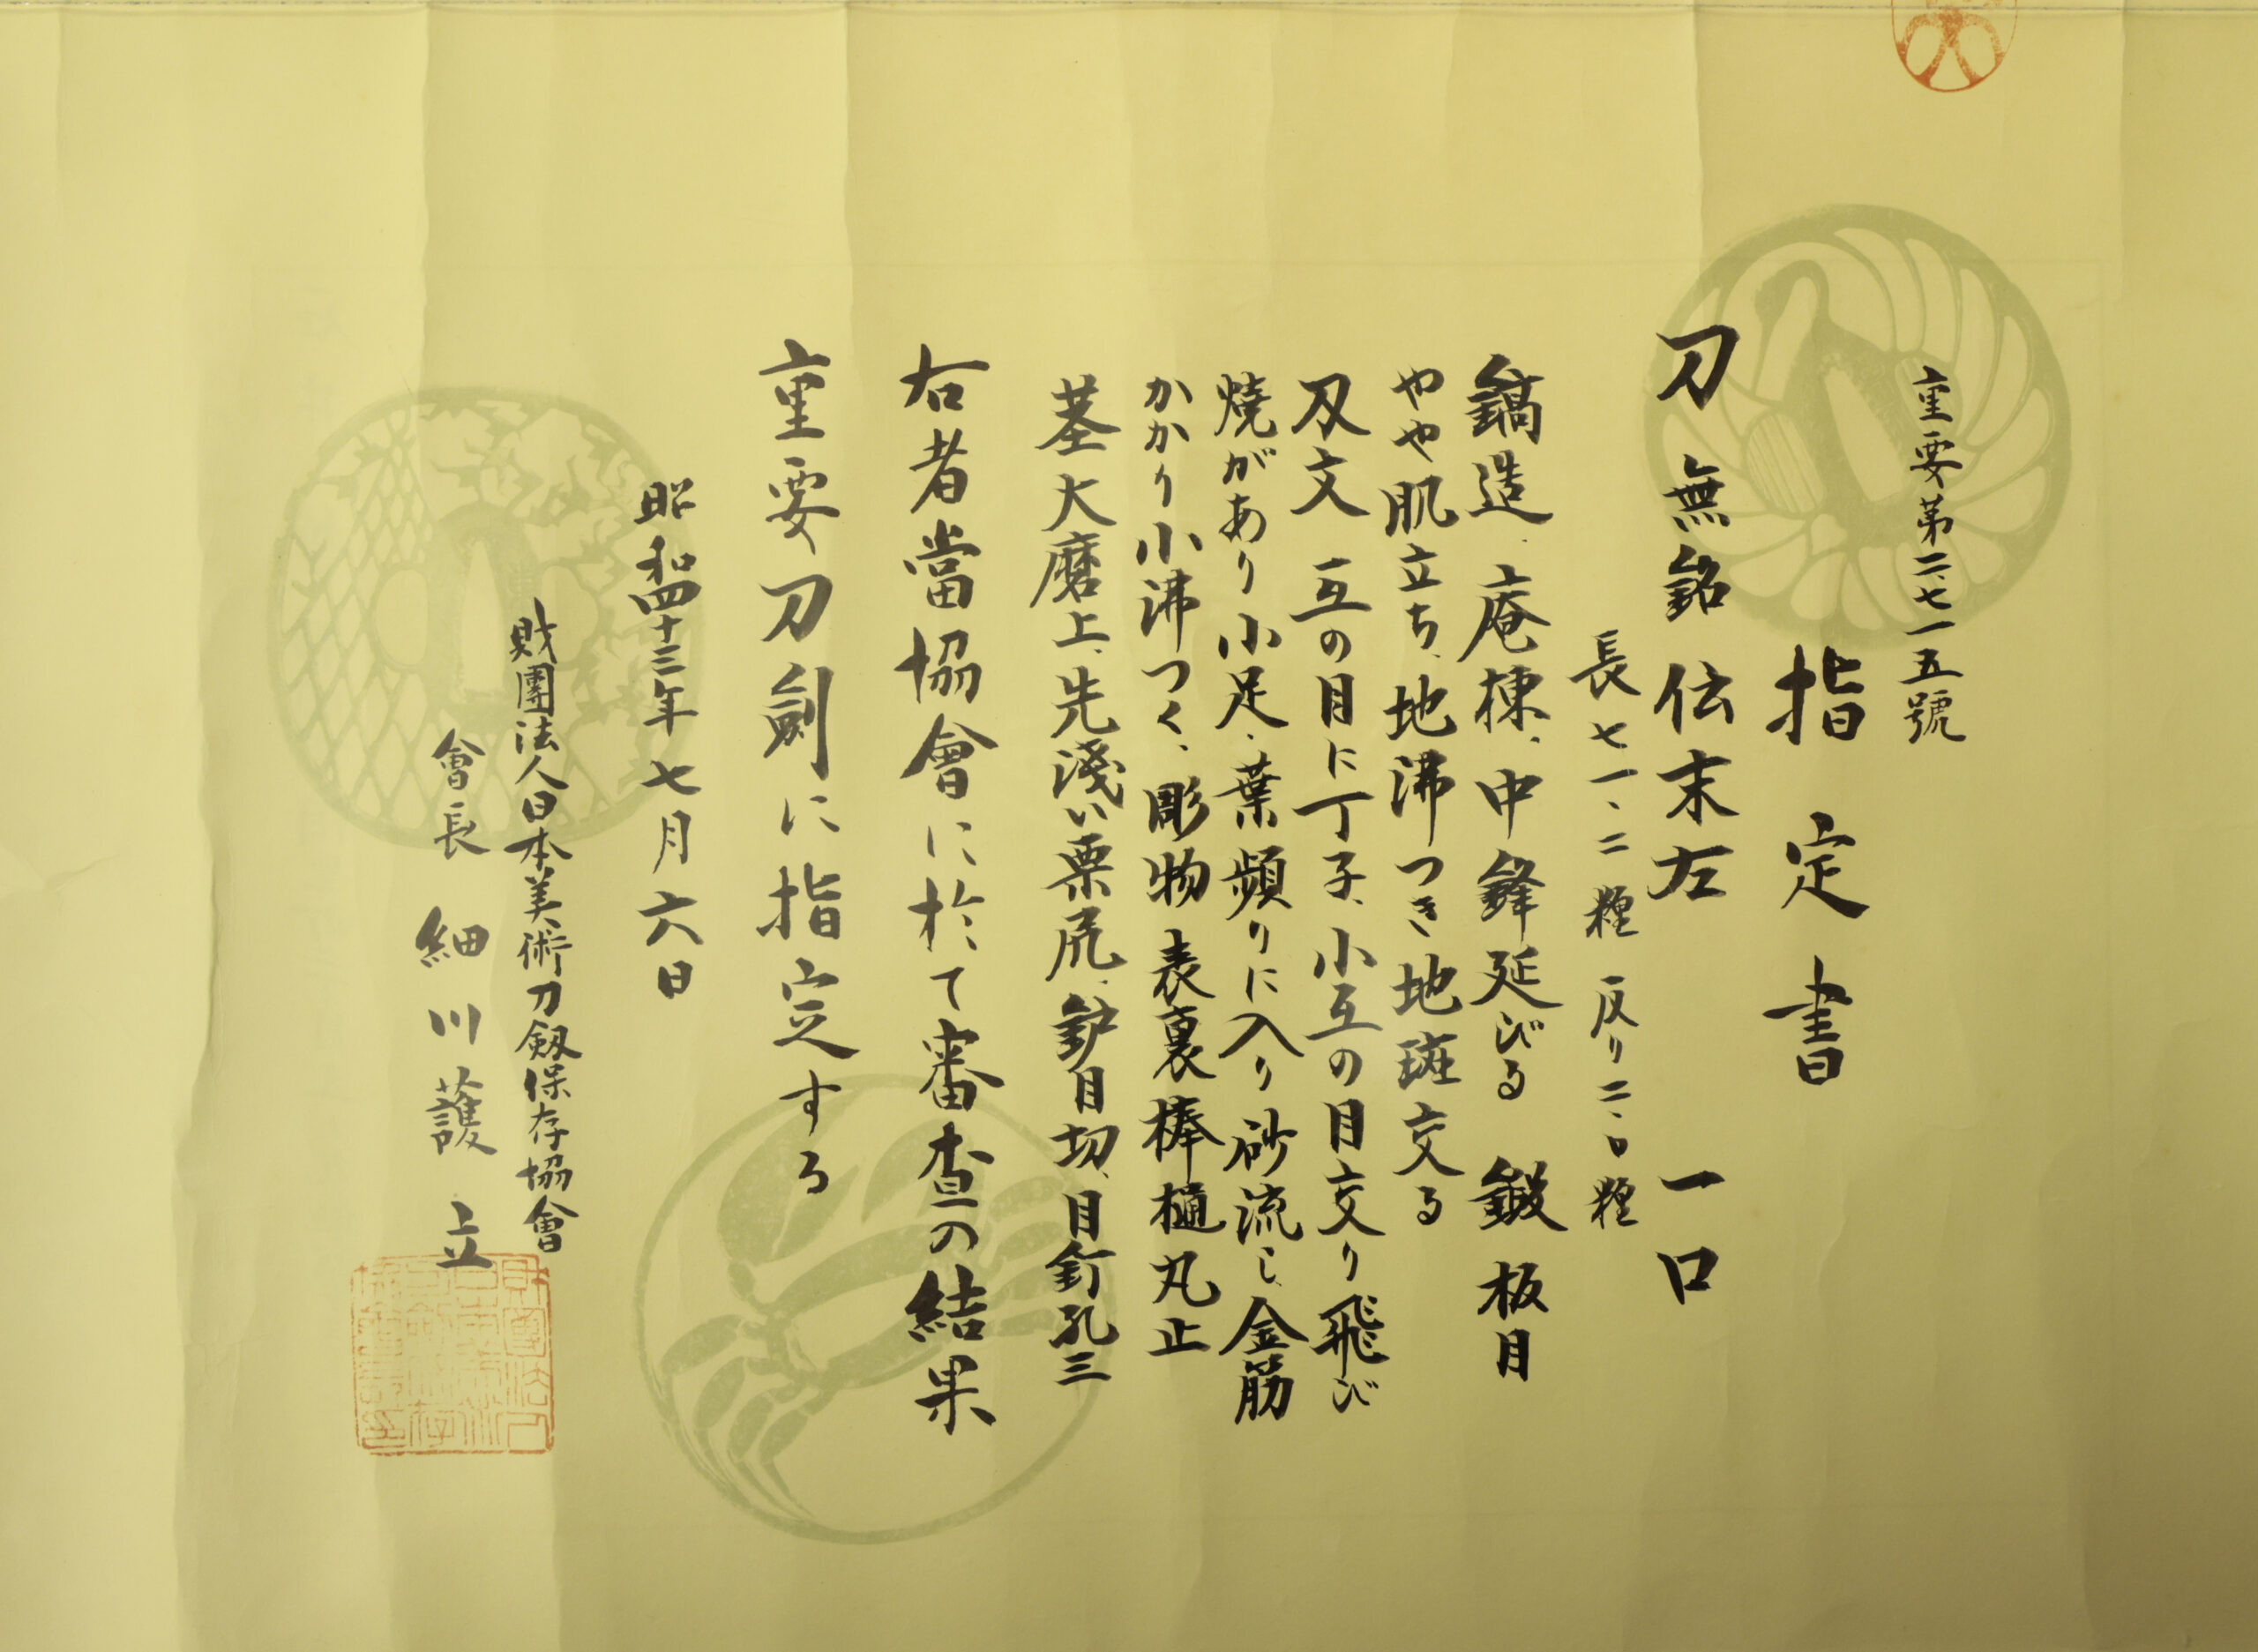 重要第二、七一五號
指定書
刀 無銘 伝末左 一口
長七一、二糎 反り二、〇糎
鎬造、庵棟、中鋒延びる 鍛 板目
やや肌立ち、地沸つき地斑交る
刃文 互の目に丁子、小互の目交り飛び
焼があり小足、葉頻りに入り砂流し、金筋
かかり小沸つく、彫物 表裏棒樋丸止
茎 大磨上、先淺い栗尻、鈩目切、目釘孔三
右者當協會に於て審査の結果
重要刀劍に指定する
昭和四十三年七月六日
財團法人日本美術刀劔保存協會
會長 細川護立